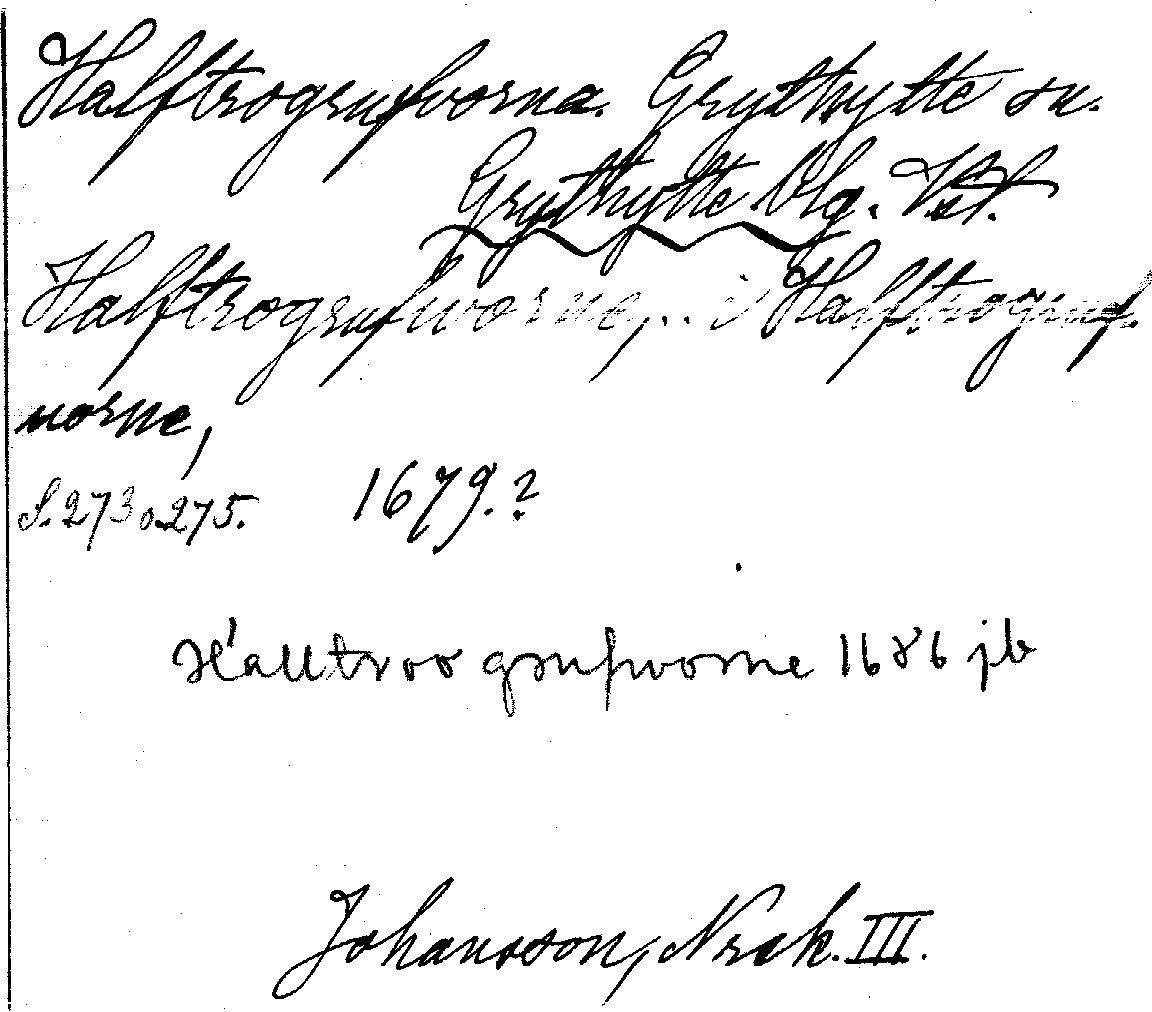 Halftrogrufvorna. Grythytte sn.
Grythytte blg. Vstl.
Halftrogrufworne, .. i Halftrogruf-
worne,
S. 273 o. 275. 1679.?
Halltroo grufworne 1686 jb
Johansson, Norak. III.